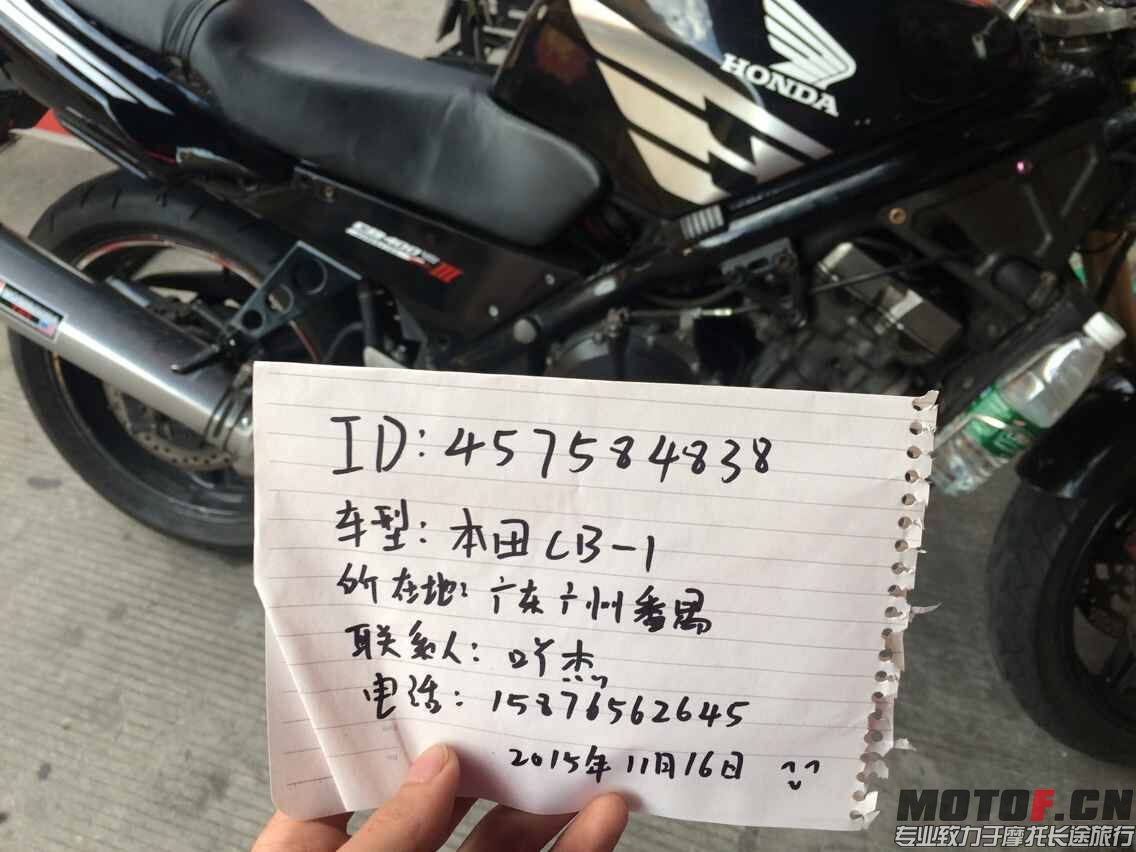 HONDA
ID:457584838
车型:本田CB-1
所在地:广东广州番禺
联系人:吖杰
电话:15876562645
2015年11月16日
MOTOF.CN
专业致力于摩托长途旅行